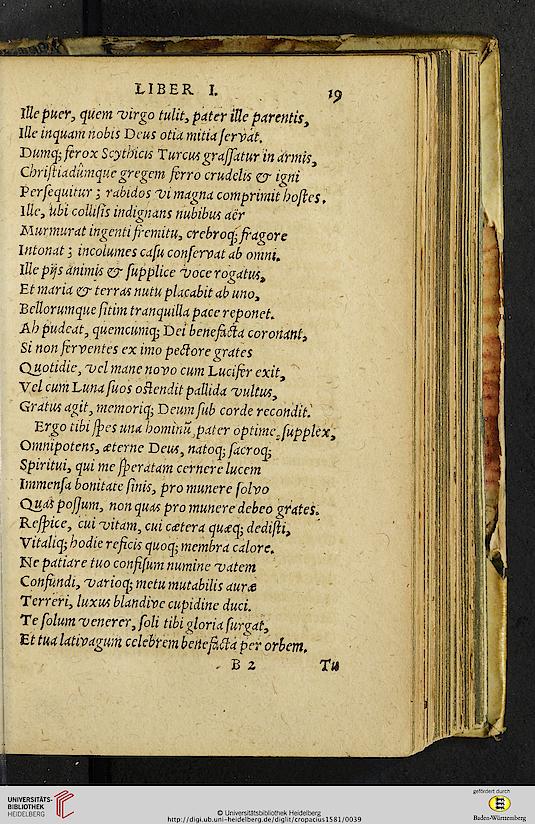 LIBER I. 19
Ille puer, quem virgo tulit, pater ille parentis,
Ille inquam nobis Deus otia mitia servat.
Dumq; ferox Scythicis Turcus grassatur in armis,
Christiadûmque gregem ferro crudelis & igni
Persequitur; rabidos vi magna comprimit hostes.
Ille, ubi collisis indignans nubibus aër
Murmurat ingenti fremitu, crebroq; fragore
Intonat; incolumes casu conservat ab omni.
Ille pijs animis & supplice voce rogatus,
Et maria & terras nutu placabit ab uno,
Bellorumque sitim tranquilla pace reponet.
Ah pudeat, quemcumq; Dei benefacta coronant,
Si non ferventes ex imo pectore grates
Quotidie, vel mane novo cum Lucifer exit,
Vel cum Luna suos ostendit pallida vultus,
Gratus agit, memoriq; Deum sub corde recondit.
Ergo tibi spes una hominũ, pater optime, supplex,
Omnipotens, æterne Deus, natoq; sacroq;
Spiritui, qui me speratam cernere lucem
Immensa bonitate sinis, pro munere solvo
Quas possum, non quas pro munere debeo grates.
Respice, cui vitam, cui cætera quæq; dedisti,
Vitaliq; hodie reficis quoq; membra calore.
Ne patiare tuo confisum numine vatem
Confundi, varioq; metu mutabilis auræ
Terreri, luxus blandive cupidine duci.
Te solum venerer, soli tibi gloria surgat,
Et tua lativagum celebrem benefacta per orbem.
B 2 Tu
UNIVERSITÄTS-
BIBLIOTHEK
HEIDELBERG
© Universitätsbibliothek Heidelberg
http://digi.ub.uni-heidelberg.de/diglit/cropacius1581/0039
gefördert durch
Baden-Württemberg